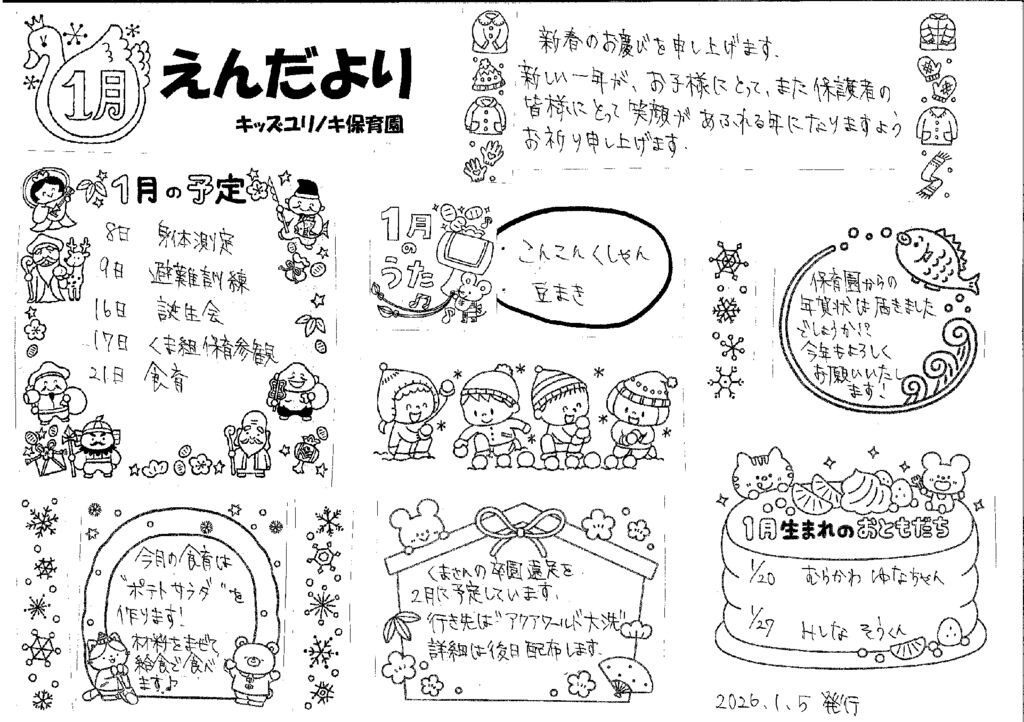 1月
えんだより
キッズユリノキ保育園
新春のお慶びを申し上げます.
新しい一年が、お子様にとって、また保護者の
皆様にとって笑顔があふれる年になりますよう
お祈り申し上げます.
1月の予定
8日 身体測定
9日 避難訓練
16日 誕生会
17日 くま組保育参観
21日 食育
1月
の
うた
・こんこんくしゃん
・豆まき
保育園からの
年賀状は届きました
でしょうか!?
今年もよろしく
お願いいたし
ます!
今月の食育は
"ポテトサラダ"を
作ります!
材料をまぜて
給食で食べ
ます♪
くまさんの卒園遠足を
2月に予定しています.
行き先は"アクアワールド大洗"
詳細は後日配布します.
1月生まれのおともだち
1/20 むらかわ ゆなちゃん
1/27 そうくん
2026.1.5 発行